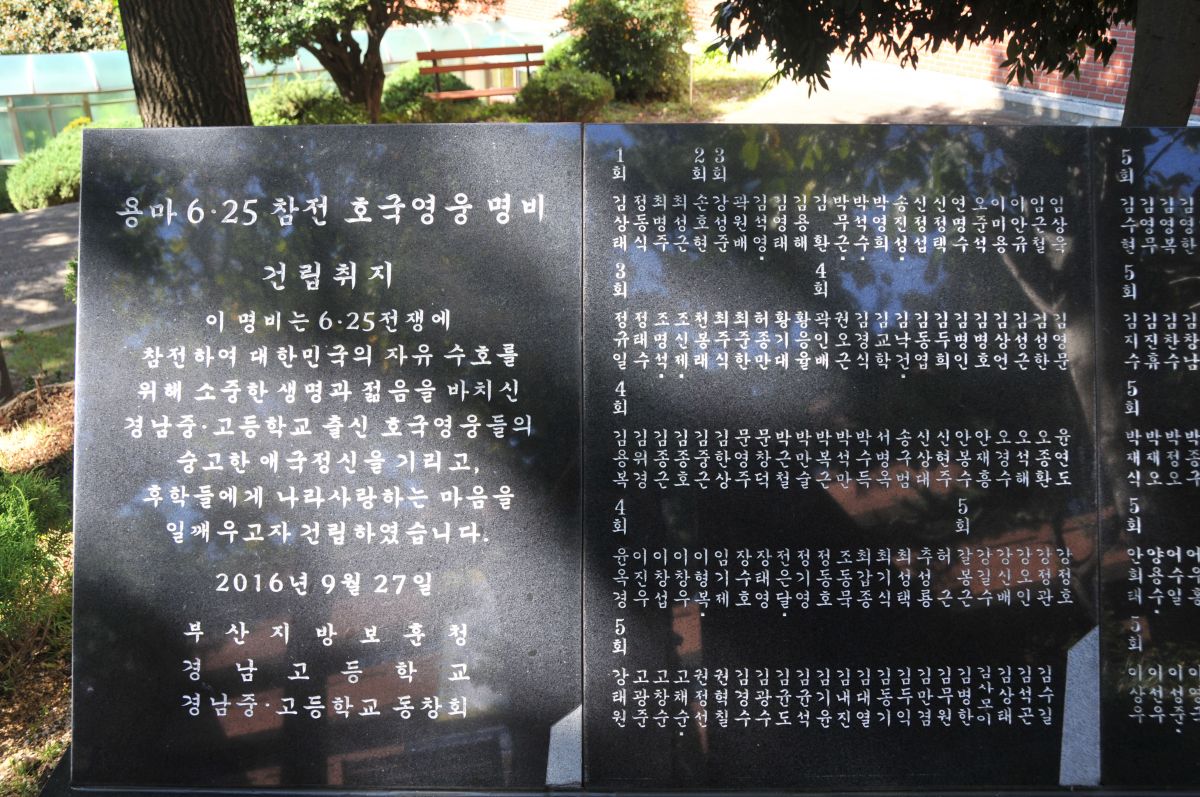 용마 6·25 참전 호국영웅 명비
건립취지
이 명비는 6·25전쟁에
참전하여 대한민국의 자유 수호를
위해 소중한 생명과 젊음을 바치신
경남중·고등학교 출신 호국영웅들의
숭고한 애국정신을 기리고,
후학들에게 나라사랑하는 마음을
일깨우고자 건립하였습니다.
2016년 9월 27일
부산지방보훈청
경남고등학교
경남중·고등학교 동창회
1회 2회 3회
김상태 정동식 최명주 최성근 손호현 강성준 곽원배 김석영. 김영태 김용해 김환 박무근. 박석수. 박영희 송진성. 신정섭 신정택 연명수 오준석 이미용 이안규 임근철 임상욱
3회 4회
정규일 정태수 조명석. 조신제. 천봉래 최주식 최준한 허종만 황기대 황응율 곽인배 권오근 김경식 김교학 김낙건. 김동엽 김두희 김명인 김병호 김상언 김성근 김성한 김영문
4회
김용복 김위경 김종근 김종호 김중근 김한상 문영주 문창덕 박근철 박만술 박복근 박석만 박수득 서병욱 송구범 신상대 신현주 안봉수 안재흥 오경수 오석해 오종환 윤연도
4회 5회
윤욱경 이진우 이창섭 이창우 이형복. 임기제 장수호 장태영 전은달. 정기영 정동호 조동묵 최갑종 최기식 최성택 추성룡 허근 갈봉근 강길수 강신배 강오인 강정관 강정호
5회
강태원 고광준 고창순 고채순. 권정선 권혁칠 김경수 김광수 김균도 김균석 김기윤 김내진 김대열 김동기 김두익 김만겸 김무원 김병한 김사모이 김상태 김석곤 김수길
5회
김수현 김영무 김영복 김영한
5회
김지수 김진휴 김찬수 김창남
5회
박재식 박재오 박정오
5회
안희태 양용수. 어수일
5회
이상우 이선우 이성준.